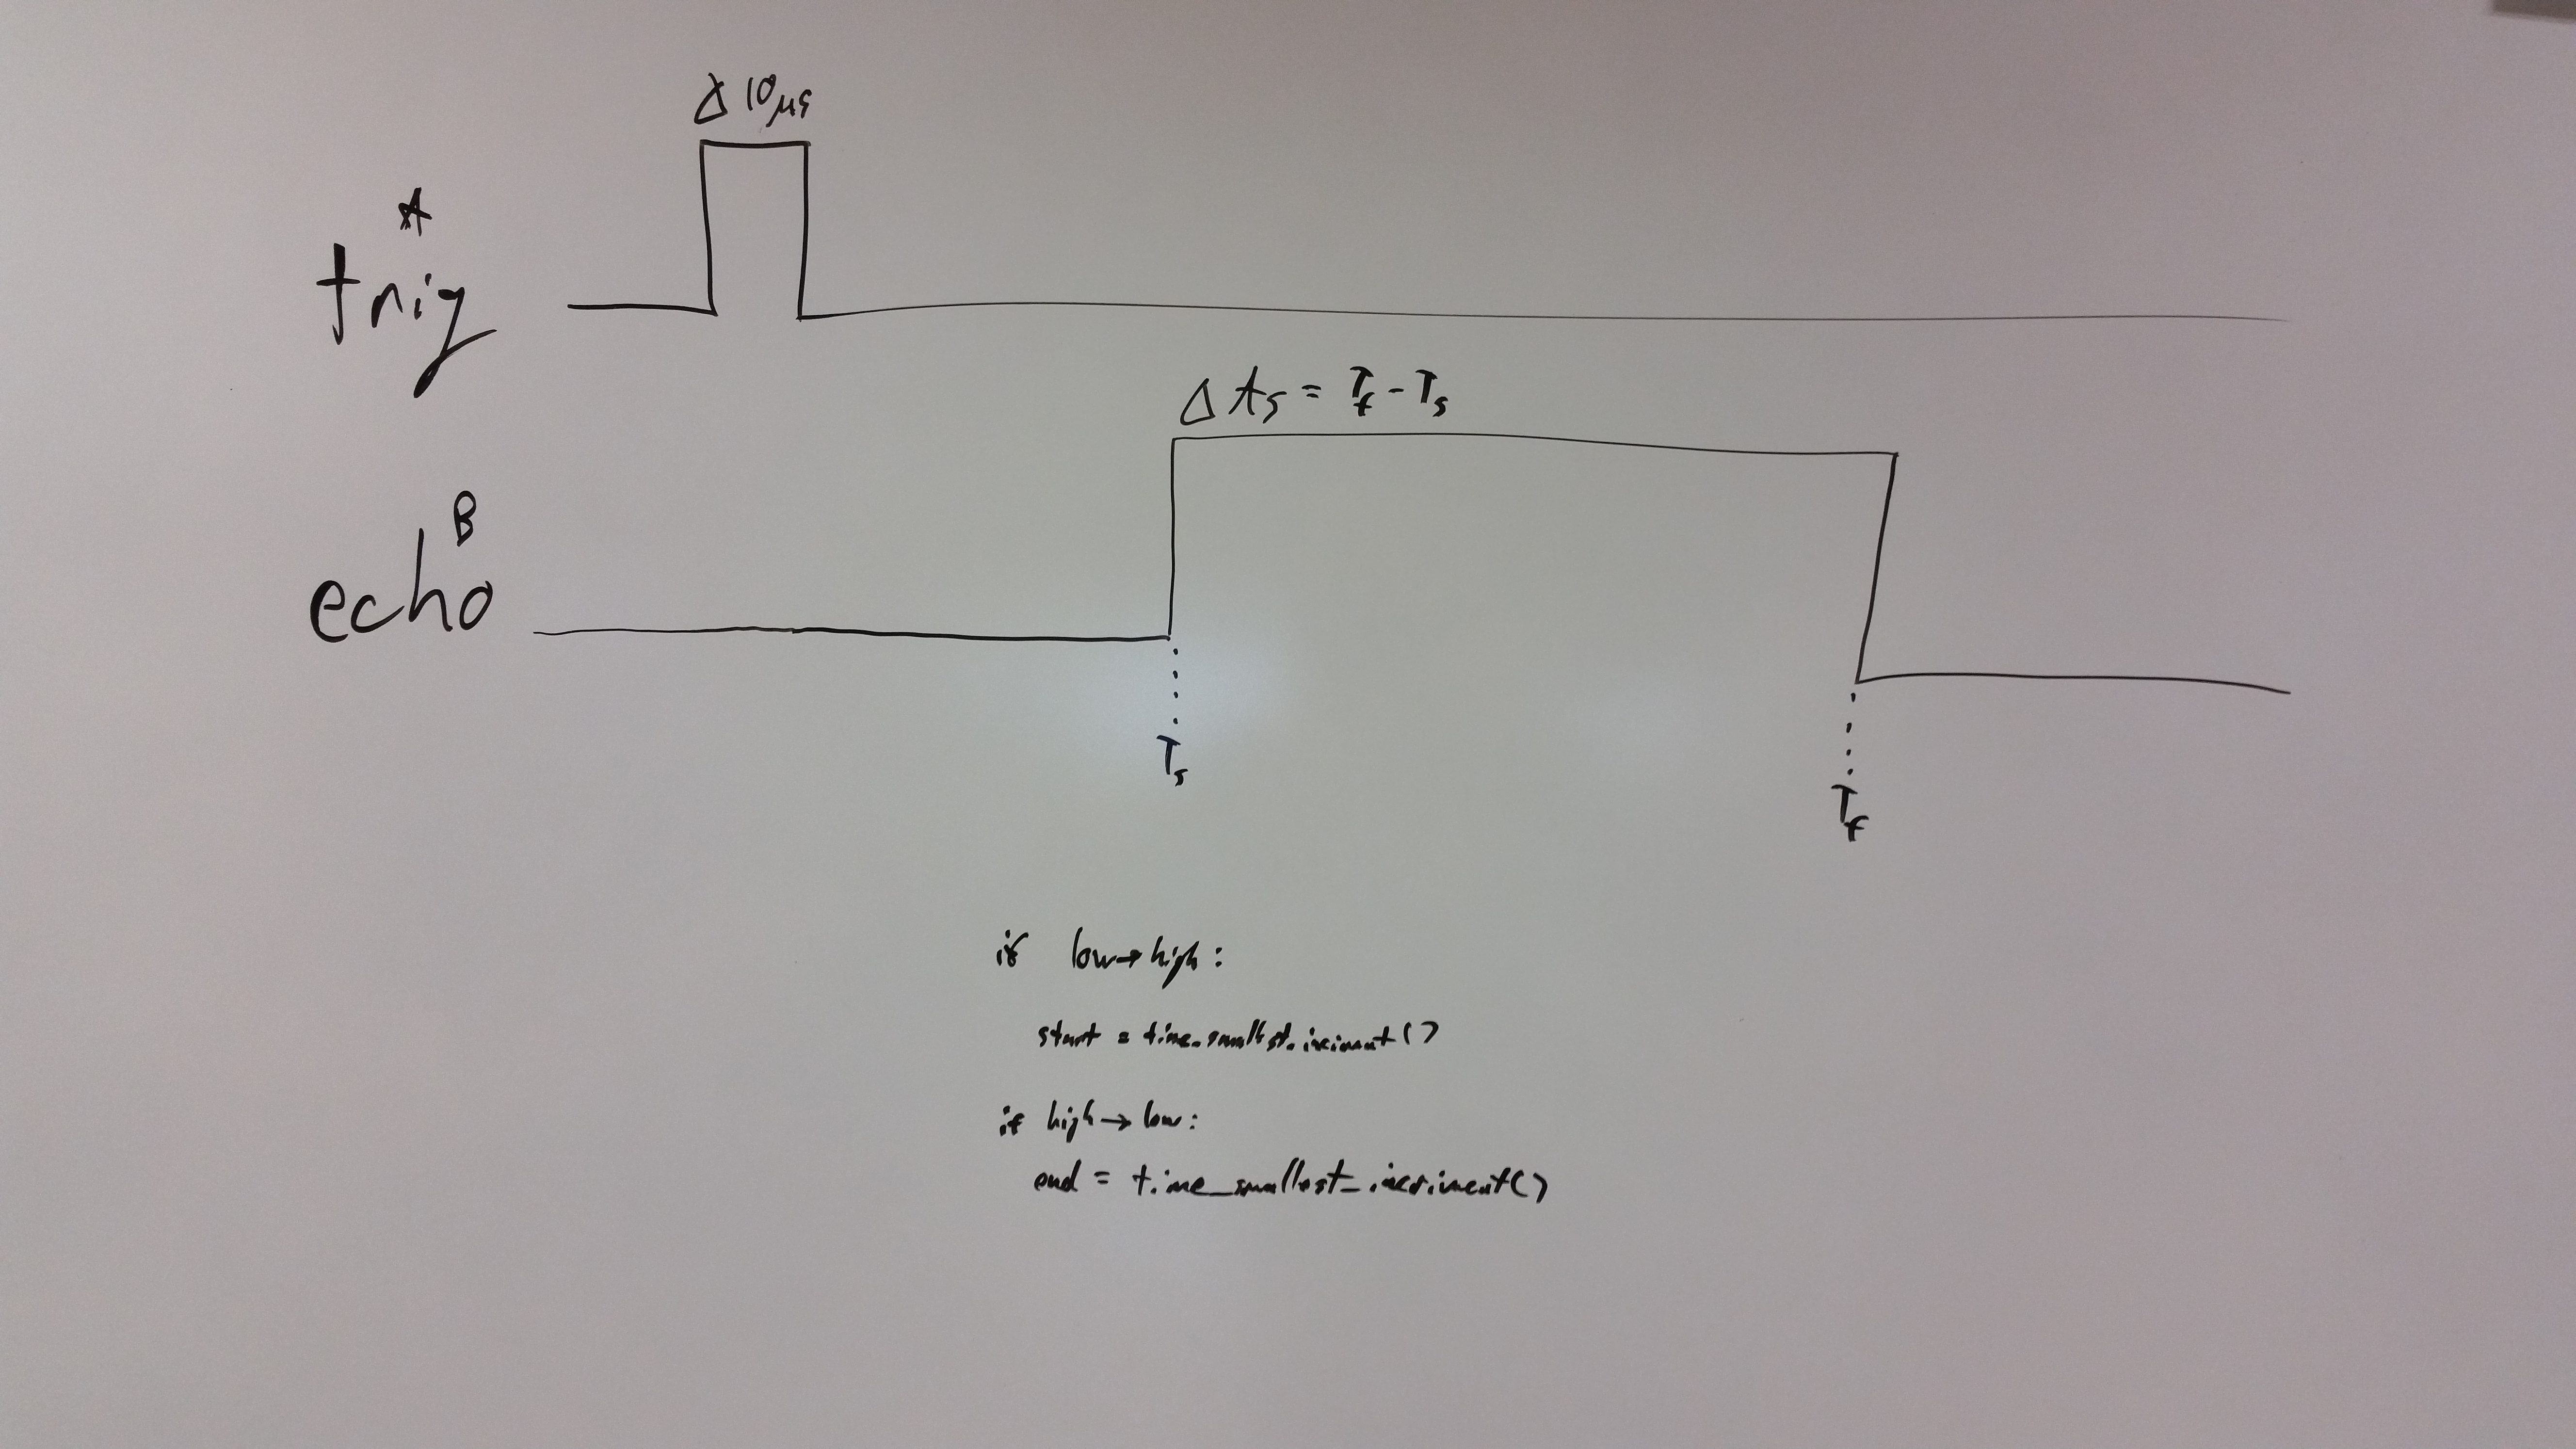 Δ 10μs
A
trig
Δ ts = Tf - Ts
B
echo
Ts
Tf
if low→high:
start = time_smallest_iniciment()
if high→low:
end = time_smallest_incriment()